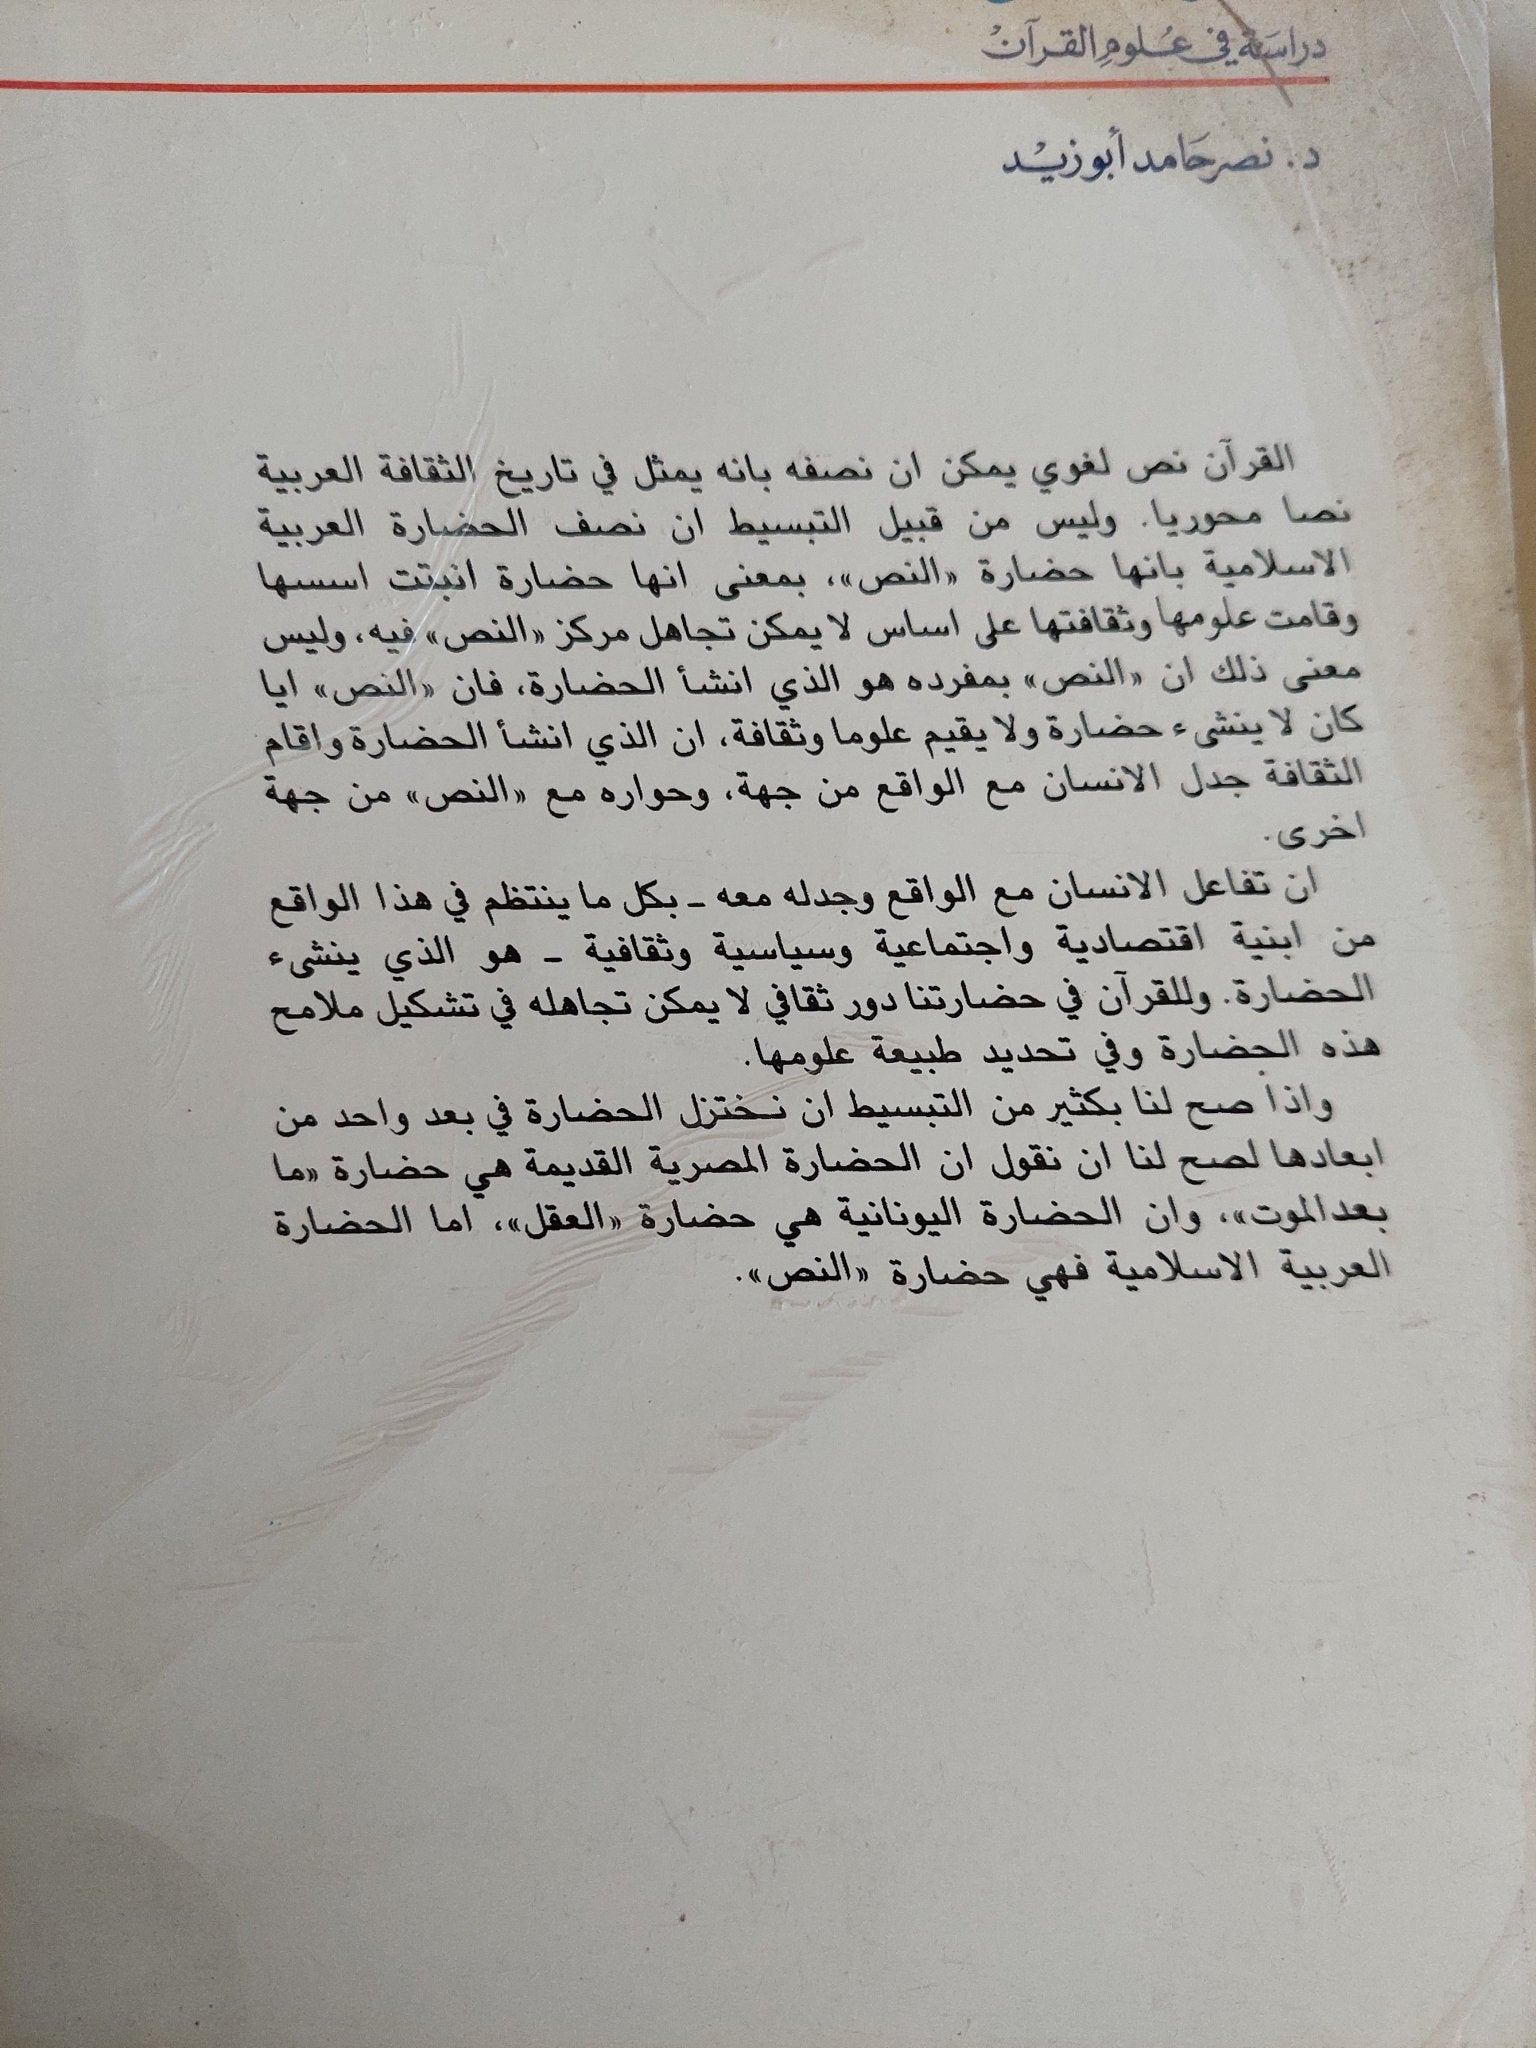 دراسة في علوم القرآن
د. نصر حامد أبو زيد
القرآن نص لغوي يمكن ان نصفه بانه يمثل في تاريخ الثقافة العربية
نصا محوريا. وليس من قبيل التبسيط ان نصف الحضارة العربية
الاسلامية بانها حضارة «النص»، بمعنى انها حضارة انبتت اسسها
وقامت علومها وثقافتها على اساس لا يمكن تجاهل مركز «النص» فيه، وليس
معنى ذلك ان «النص» بمفرده هو الذي انشأ الحضارة، فان «النص» ايا
كان لا ينشىء حضارة ولا يقيم علوما وثقافة، ان الذي انشأ الحضارة واقام
الثقافة جدل الانسان مع الواقع من جهة، وحواره مع «النص» من جهة
اخرى.
ان تفاعل الانسان مع الواقع وجدله معه ـ بكل ما ينتظم في هذا الواقع
من ابنية اقتصادية واجتماعية وسياسية وثقافية ـ هو الذي ينشىء
الحضارة. وللقرآن في حضارتنا دور ثقافي لا يمكن تجاهله في تشكيل ملامح
هذه الحضارة وفي تحديد طبيعة علومها.
واذا صح لنا بكثير من التبسيط ان نختزل الحضارة في بعد واحد من
ابعادها لصح لنا ان نقول ان الحضارة المصرية القديمة هي حضارة «ما
بعد الموت»، وان الحضارة اليونانية هي حضارة «العقل»، اما الحضارة
العربية الاسلامية فهي حضارة «النص».